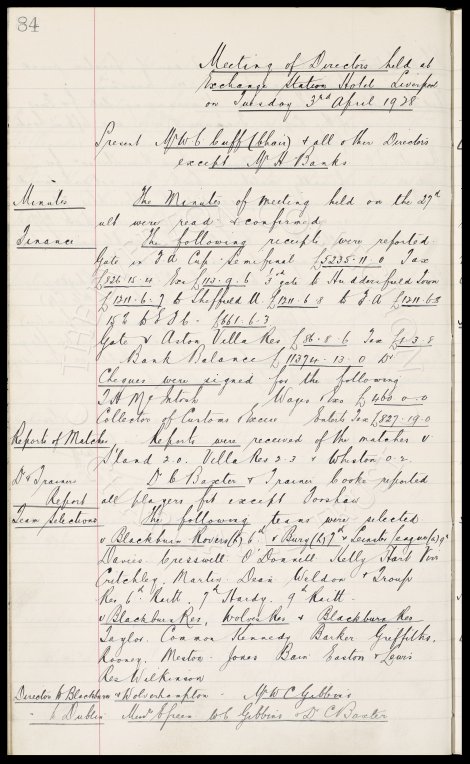 84
Meeting of Directors held at
Exchange Station Hotel Liverpool
on Tuesday 3rd April 1928
Present Mr W C Cuff (Chair) & all other Directors
except Mr H Banks
Minutes The Minutes of meeting held on the 27th
ult were read & confirmed
Finance The following receipts were reported
Gate in F A Cup Semifinal £5235.11.0 Tax
£826.15.4 Exes £113.9.6 1/3rd gate to Huddersfield Town
£1211.6.7 to Sheffield U £1211.6.8 to F A £1211.6.8
15% to E F C £661.6.3
Gate v Aston Villa Res £86.8.6 Tax £1.3.8
Bank Balance £11374.13.0 Dr
Cheques were signed for the following
T H McIntosh Wages Exes £460.0.0
Collector of Customs & Excise Enterts Tax £827.19.0
Reports of Matches Reports were received of the matches v
S'land 2.0. Villa Res 2-3 & Whiston 0-2.
Dr & Trainers Dr C Baxter & Trainer Cooke reported
Report all players fit except
Team Selections The following teams were selected
v Blackburn Rovers (h) 6th & Bury (h) 7th & Leinster League (a) 9th
Davies Cresswell O'Donnell Kelly Hart Virr
Critchley Martin Dean Weldon & Troup
Res 6th Raitt. 7th Hardy. 9th Raitt.
v Blackburn Res, Wolves Res & Blackburn Res
Taylor. Common Kennedy Barker Griffiths.
Rooney. Meston. Jones Bain Easton & Lewis
Res Wilkinson
Director to Blackburn & Wolverhampton - Mr W C Gibbins
" to Dublin Messrs Green W C Gibbins & Dr C Baxter